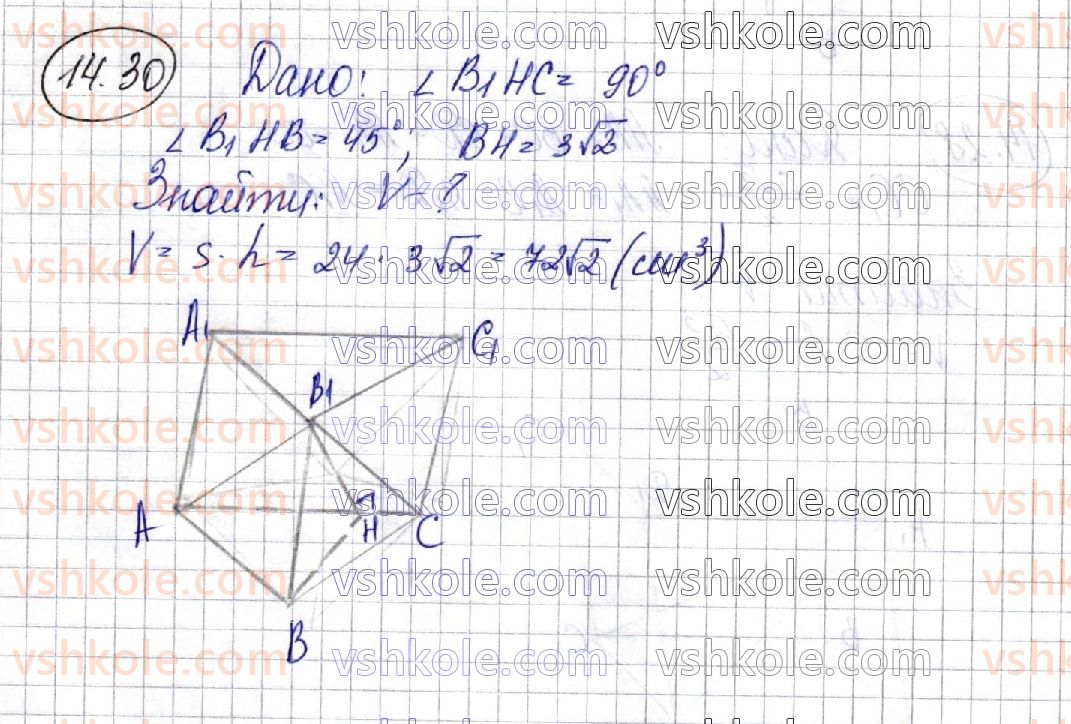 14.30 Дано: ∠B₁HC = 90°
∠B₁HB = 45°; BH = 3√2
Знайти: V - ?
V = S · h = 24 · 3√2 = 72√2 (см³)
A₁ C₁
B₁
A H C
B
vshkole.com vshkole.com vshkole.com vshkole.com
vshkole.com vshkole.com vshkole.com vshkole.com
vshkole.com vshkole.com vshkole.com vshkole.com
vshkole.com vshkole.com vshkole.com vshkole.com
vshkole.com vshkole.com vshkole.com vshkole.com
vshkole.com vshkole.com vshkole.com vshkole.com
vshkole.com vshkole.com vshkole.com vshkole.com
vshkole.com vshkole.com vshkole.com vshkole.com
vshkole.com vshkole.com vshkole.com vshkole.com